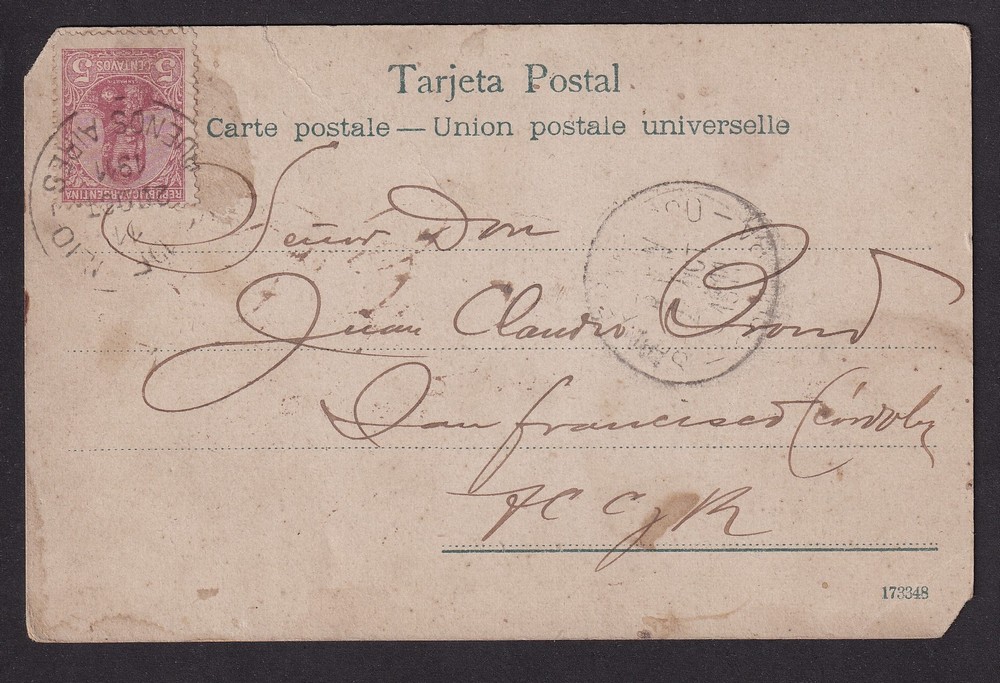 5 CENTAVOS 5
REPUBLICA ARGENTINA
BUENOS AIRES
1911
Tarjeta Postal
Carte postale — Union postale universelle
Señor Don
Juan Claudio
San Francisco (Córdoba
F C C y R
173348